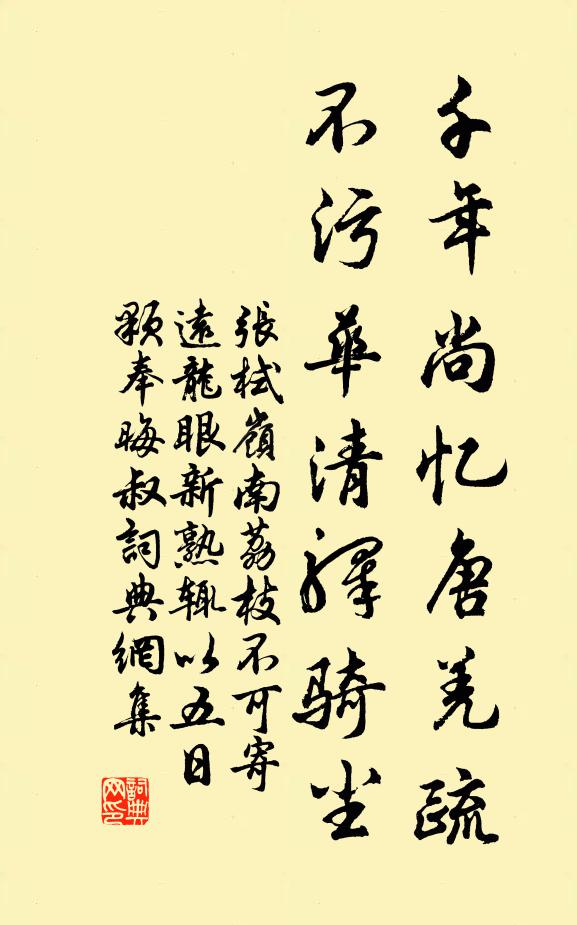 千年尚忆唐羌疏
不污華清驛骑尘
張栻嶺南荔枝不可寄
遠龍眼新熟辄以五日
顆奉晦叔詞典網集
詞典网印